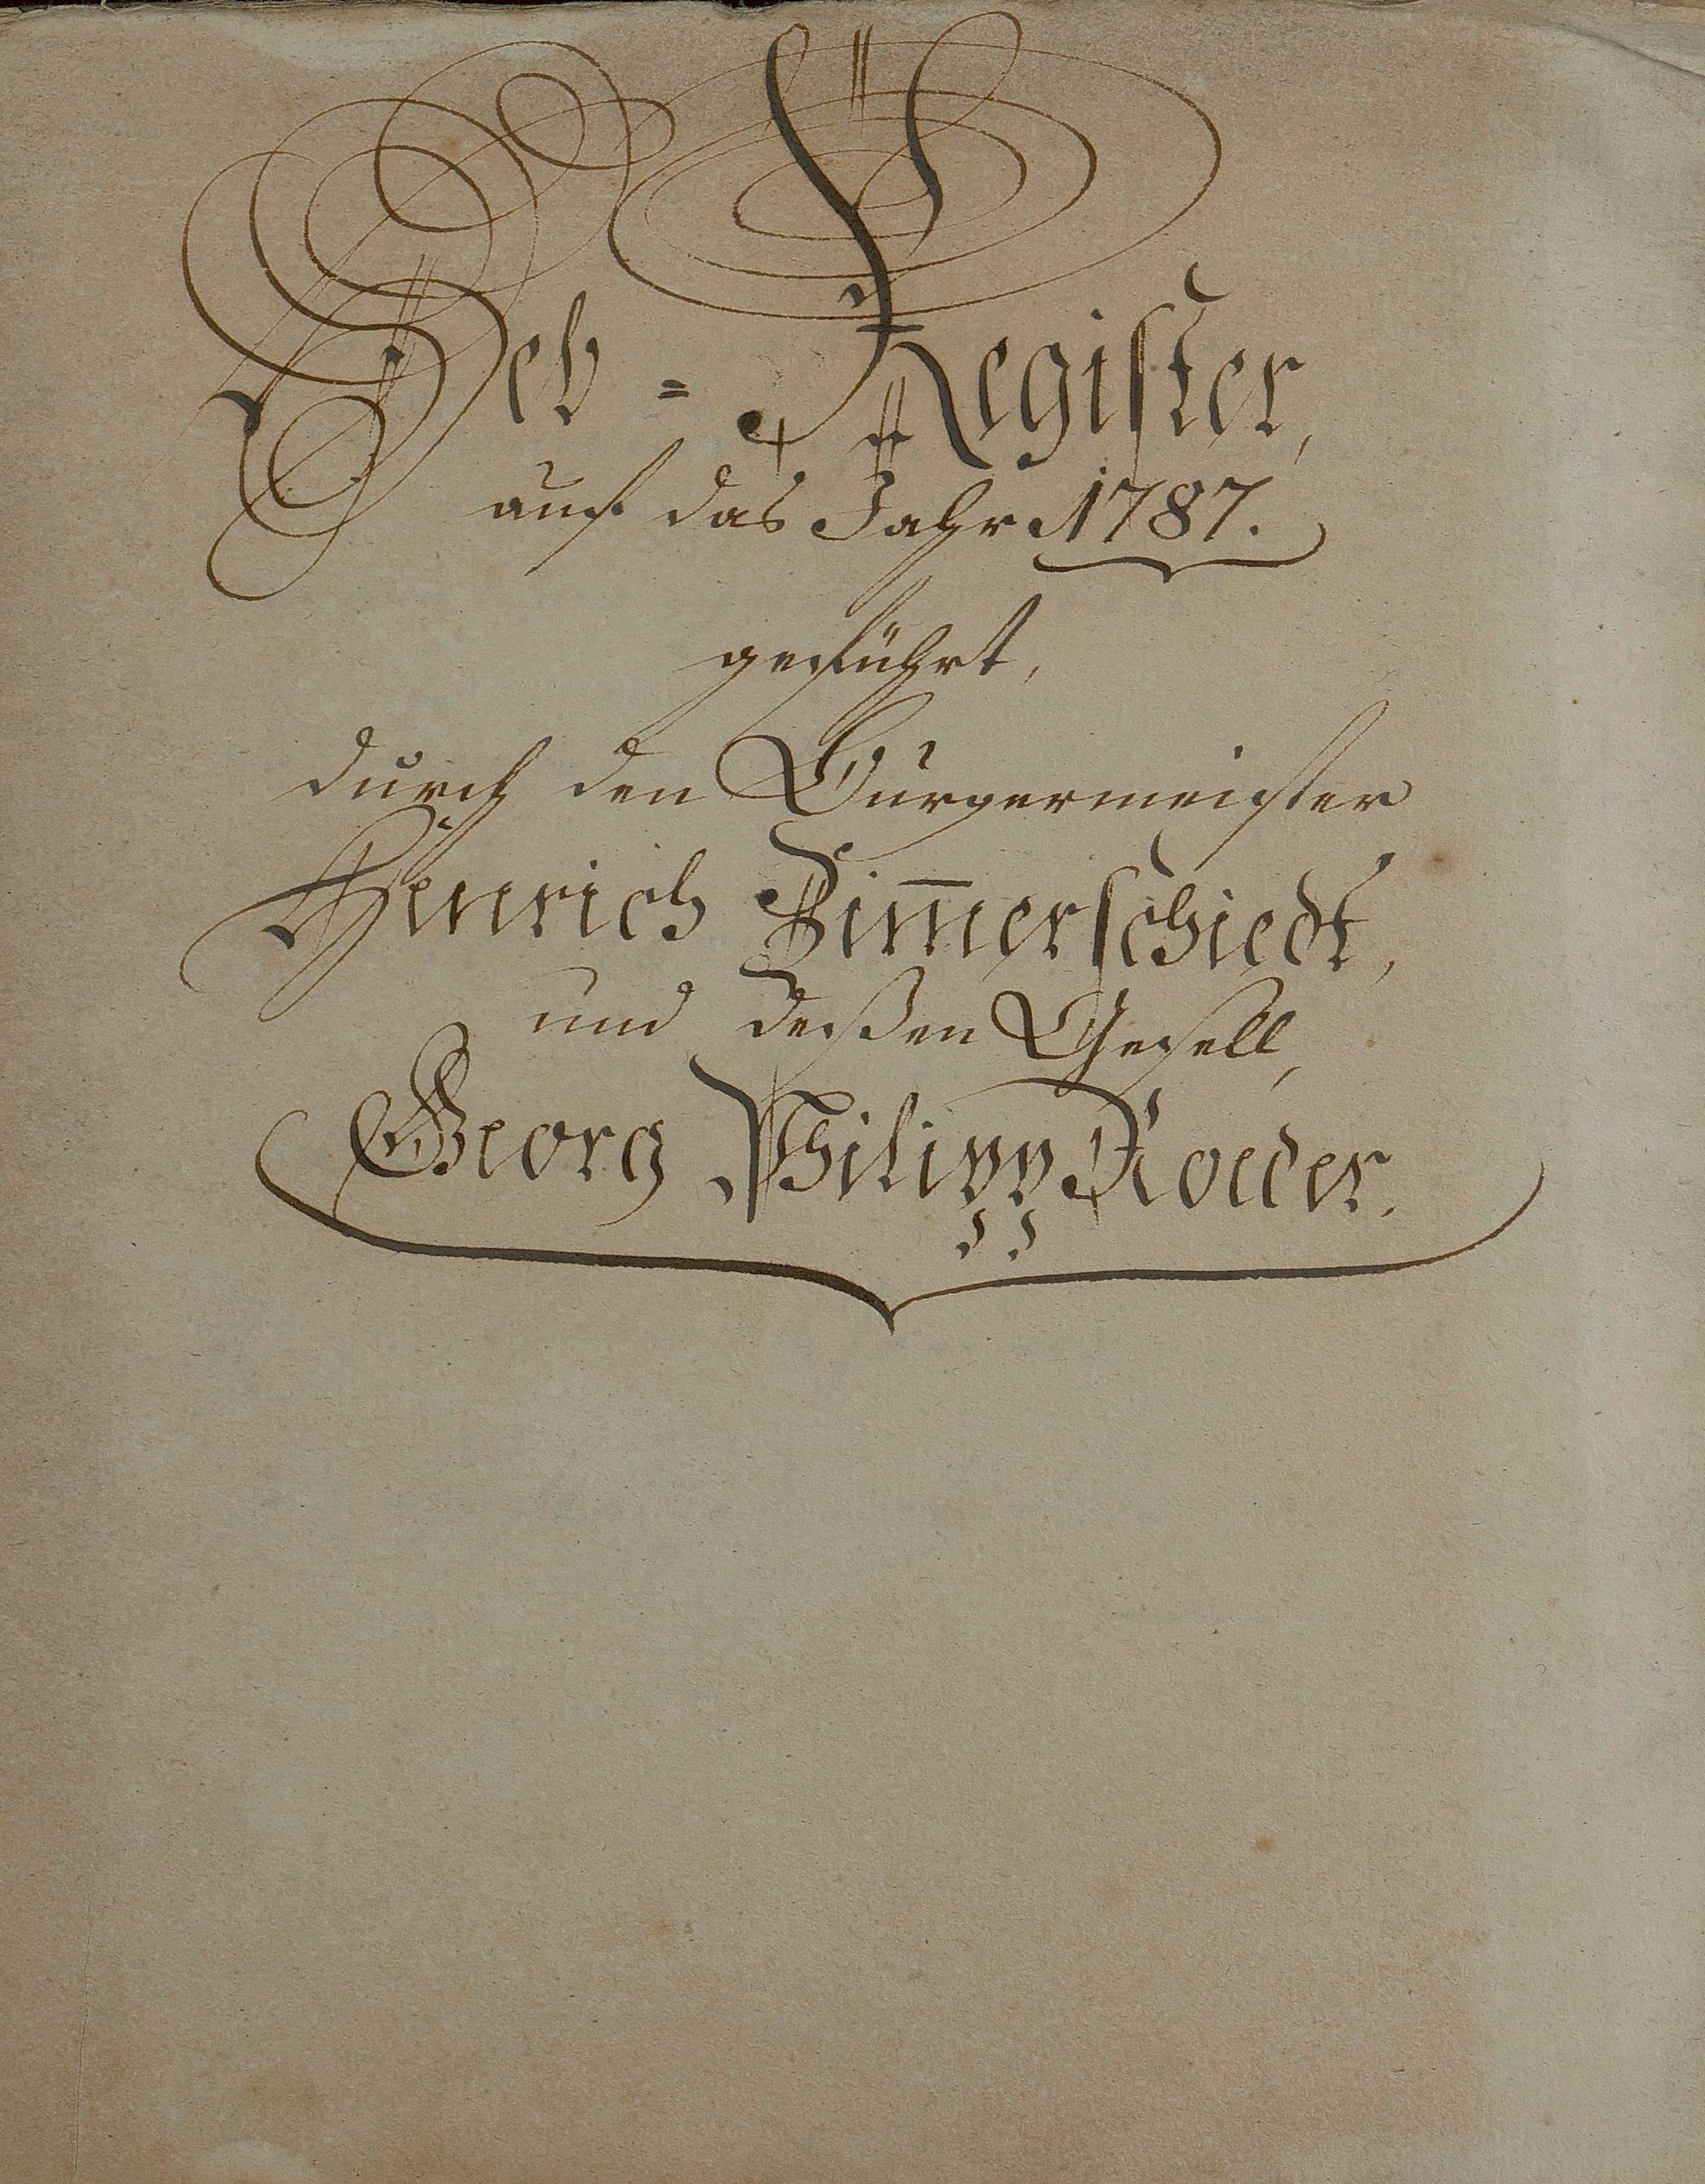 Heb = Register,
auf das Jahr 1787.
geführt,
durch den Bürgermeister
Henrich Zim̄erschiedt,
und deßen Gesell,
Georg Philipp Roeder.